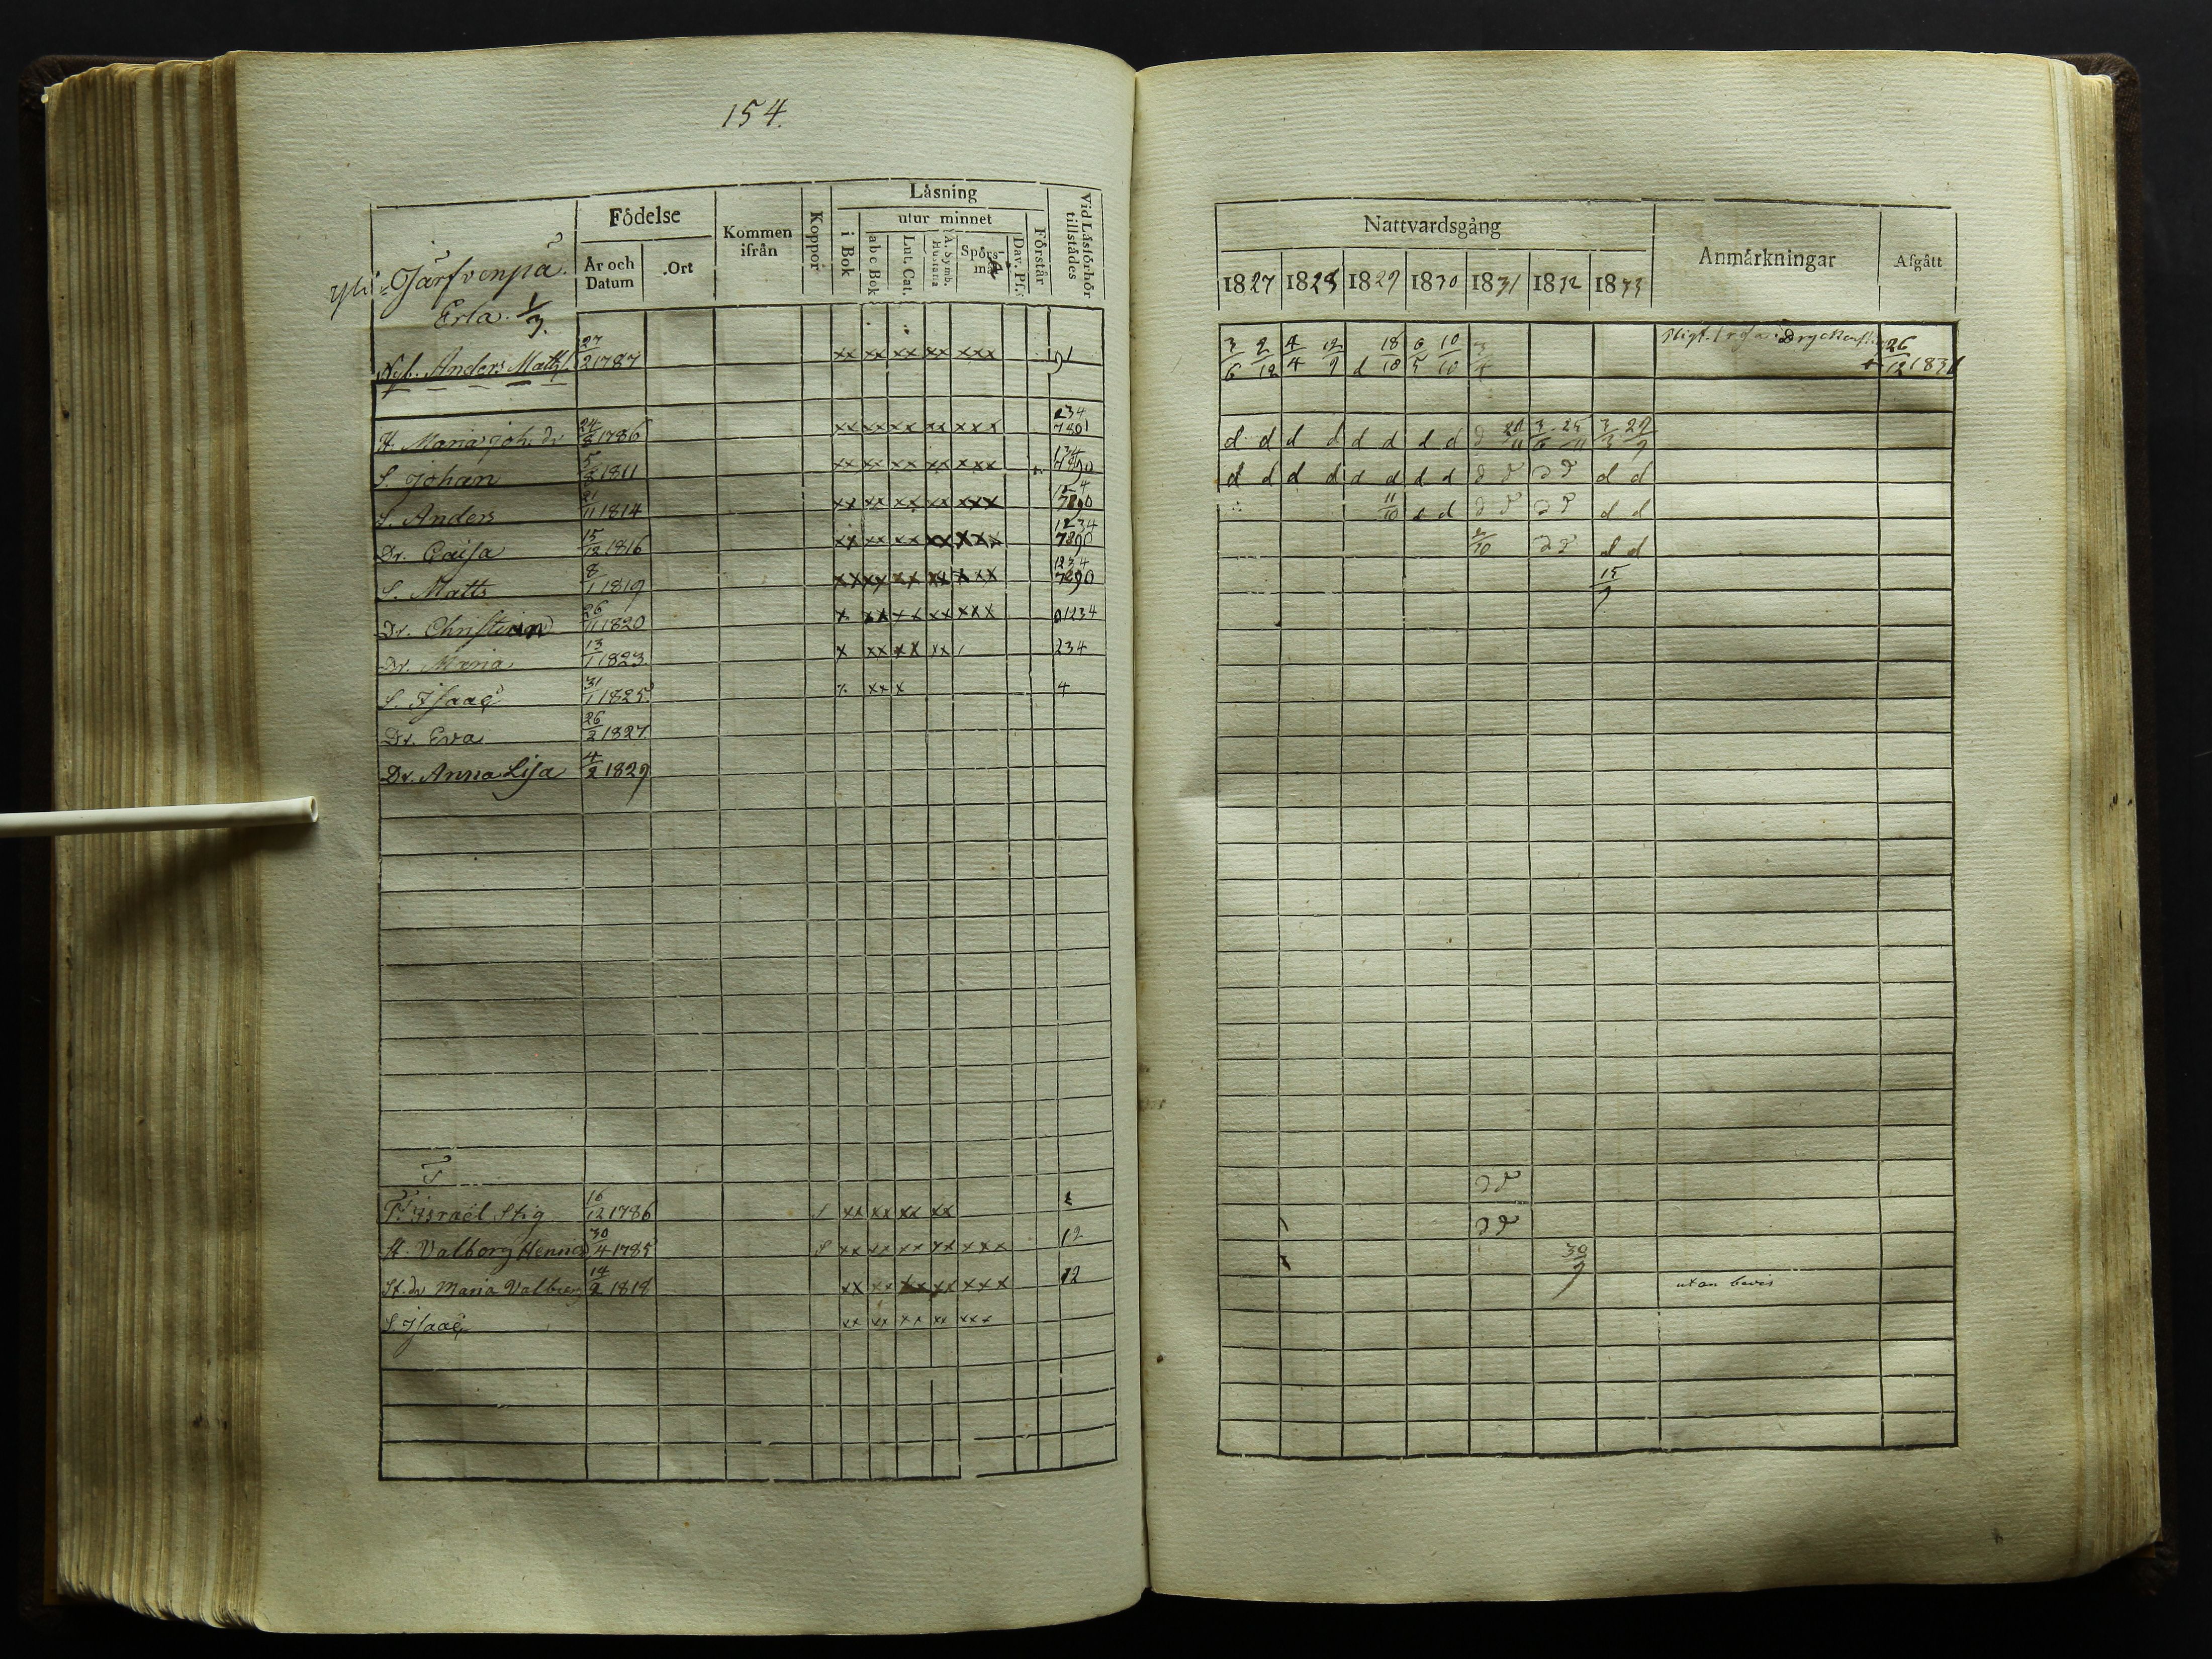 154.
yli Järfvenpä.
Erla. 1/3.
Födelse
År och Datum
Ort
Kommen ifrån
Koppor
Låsning
i Bok
utur minnet
abc Bok
Lut. Cat.
A. Symb. Hustafla
Spörsmål
Dav. Ps.
Förstår
Vid Låsförhör tillstädes
Nyb. Anders Matts. 27/2 1787 xx xx xx xx xxx 91
H. Maria Joh. dr 24/8 1786 xx xx xx xx xxx 234 7801
S. Johan 5/8 1811 xx xx xx xx xxx + 134 7890
S. Anders 21/11 1814 xx xx xx xx xxx 7890
Dr. Caisa 15/12 1816 xx xx xx xx xxx 1234 7890
S. Matts 8/1 1819 xx xx xx xx xxx 1234 7890
Dr. Christina 26/11 1820 x xx xx xx xxx 01234
Dr. Maria 13/1 1823 x xx xx xx / 234
S. Isaac 31/1 1825 xx x 4
Dr. Eva 26/2 1827
Dr. Anna Lisa 4/2 1829
Israël Stig 16/12 1786 xx xx xx xx
H. Valborg Henric 30/4 1785 xx xx xx xx xxx 12
St. dr Maria Valborg 14/2 1818 xx xx xx xx xxx 12
S. Isaac xx xx xx xx xxx
Nattvardsgång
Anmärkningar
Afgått
1827 1828 1829 1830 1831 1832 1833
3/6 2/12 4/4 12/9 d 18/10 6/5 10/10 3/4 Dryckenskap + 26/12 1831
d d d d d d d d d 3/6 3/3 29/9
d d d d d d d d d d d d d d
11/10 d d d d d d d d
2/10 d d d d
15/9
d d
d d
30/9
utan bevis